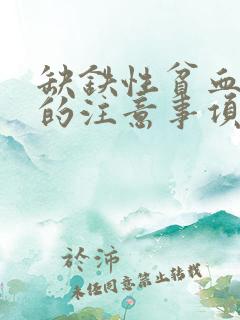 缺铁性贫血
的注意事项
於沛
未经同意禁止转载